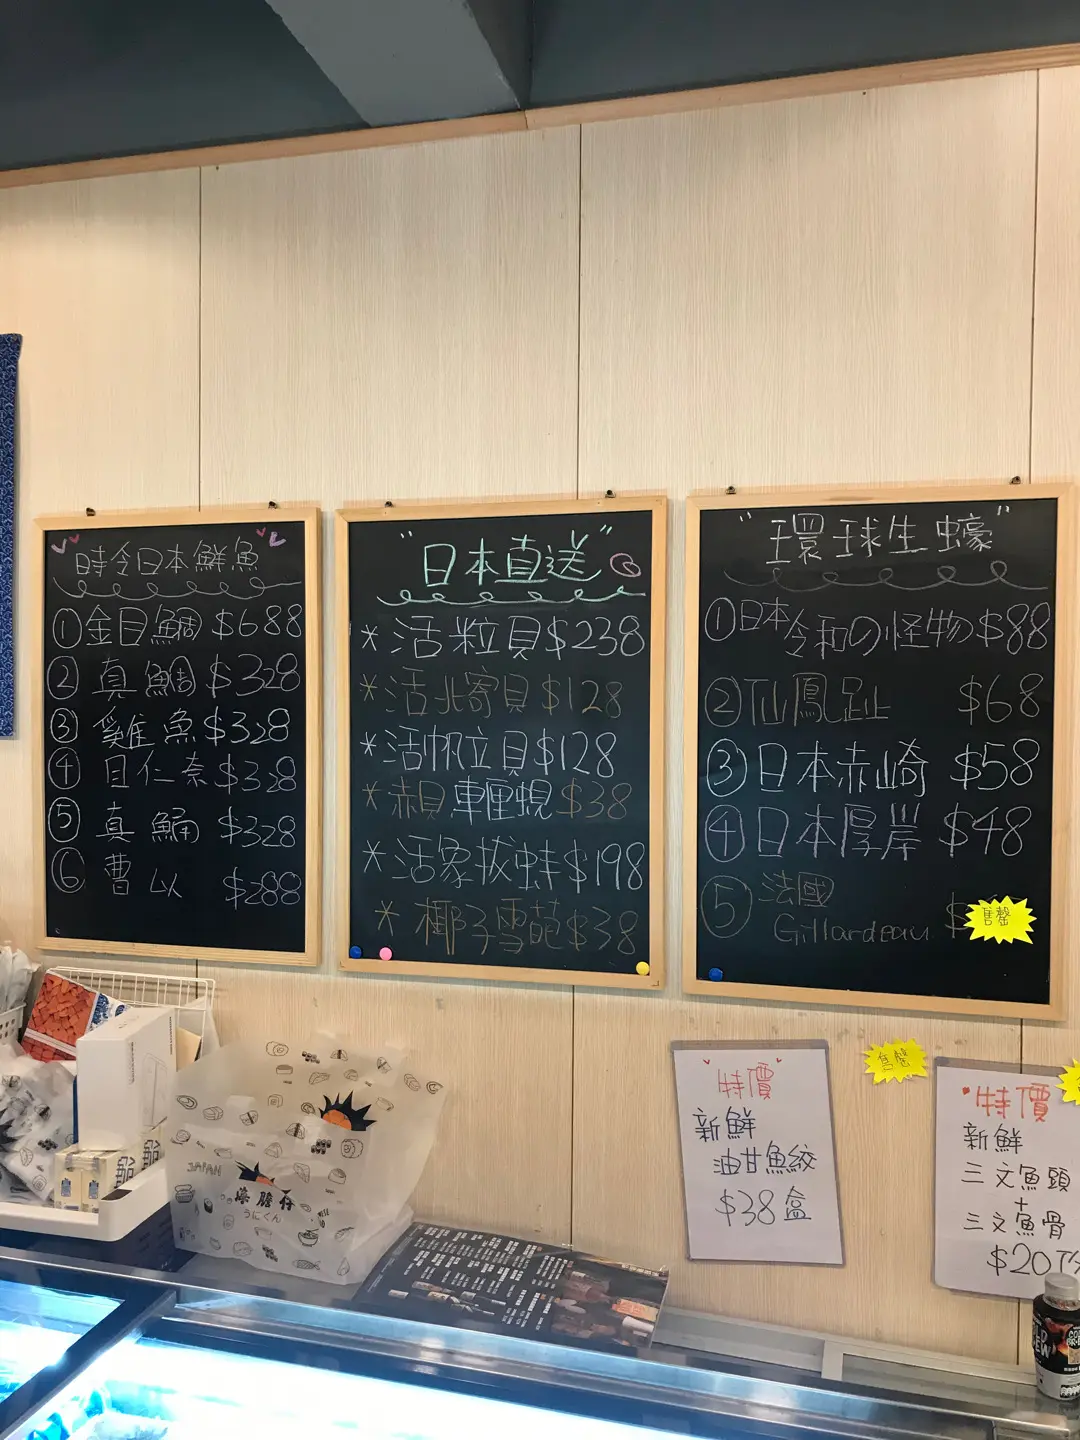 時令日本鮮魚
① 金目鯛 $688
② 真鯛 $328
③ 雞魚 $328
④ 目仁奈 $328
⑤ 真鯒 $328
⑥ 曹以 $288
"日本直送"
* 活粒貝 $238
* 活北寄貝 $128
* 活帆立貝 $128
* 赤貝 車厘蜆 $38
* 活象拔蚌 $198
* 椰子雪葩 $38
"環球生蠔"
① 日本令和の怪物 $88
② 仙鳳趾 $68
③ 日本赤崎 $58
④ 日本厚岸 $48
⑤ 法國
Gillardeau $
售罄
特價
新鮮
油甘魚鮫
$38盒
售罄
特價
新鮮
三文魚頭
三文魚骨
$20
JAPAN
海膽仔
うにくん